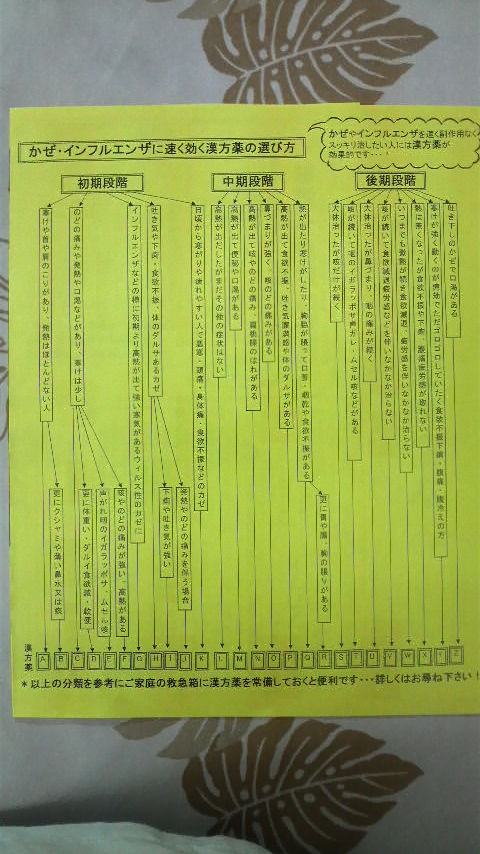 かぜ・インフルエンザに速く効く漢方薬の選び方
かぜやインフルエンザを速く副作用なく
スッキリ治したい人には漢方薬が
効果的です・・・!
初期段階
中期段階
後期段階
寒けや首や肩のこりがあり、発熱はほとんどない人
のどの痛みや発熱や口渇などがあり、寒けは少し
インフルエンザなどの様に初期より高熱が出て強い寒気があるウィルス性のカゼに
吐き気や下痢・食欲不振・体のダルサあるカゼ
日頃から寒がりや疲れやすい人で悪寒・頭痛・身体痛・食欲不振などのカゼ
高熱が出だしたがまだその他の症状はない
高熱が出て便秘や口渇がある
高熱が出て咳やのどの痛み、扁桃腺の腫れがある
鼻づまりが強く、咳のどの痛みがある
高熱が出て食欲不振、吐き気腹満感や体のダルサがある
熱が出たり寒けがしたり、胸脇が張って口苦・咽乾や食欲不振がある
大体治ったが咳だけが続く
咳が続いて咽のイガラッポサ声ガレ・ムセル咳などがある
大体治ったが鼻づまり、咽の痛みが続く
咳が続いて食欲減退疲労感などを伴いなかなか治らない
いつまでも微熱が続き食欲減退、疲労感を伴いなかなか治らない
熱は無くなったが食欲不振や下痢、腹満疲労感が取れない
寒けが強く動くのが億劫でただゴロゴロしていたく食欲不振下痢・腹痛・腹冷えの方
吐き下しのかぜで口渇がある
更にクシャミや薄い鼻水又は痰
更に体重い・ダルイ食欲減・軟便
声がれ咽のイガラッポサ、ムセル咳
咳やのどの痛みが強い、高熱がある
下痢や吐き気が強い
発熱やのどの痛みを伴う場合
更に胃や腸、胸の張りがある
漢方薬
A B C D E F G H I J K L M N O P Q R S T U V W X Y Z
*以上の分類を参考にご家庭の救急箱に漢方薬を常備しておくと便利です・・・詳しくはお尋ね下さい!